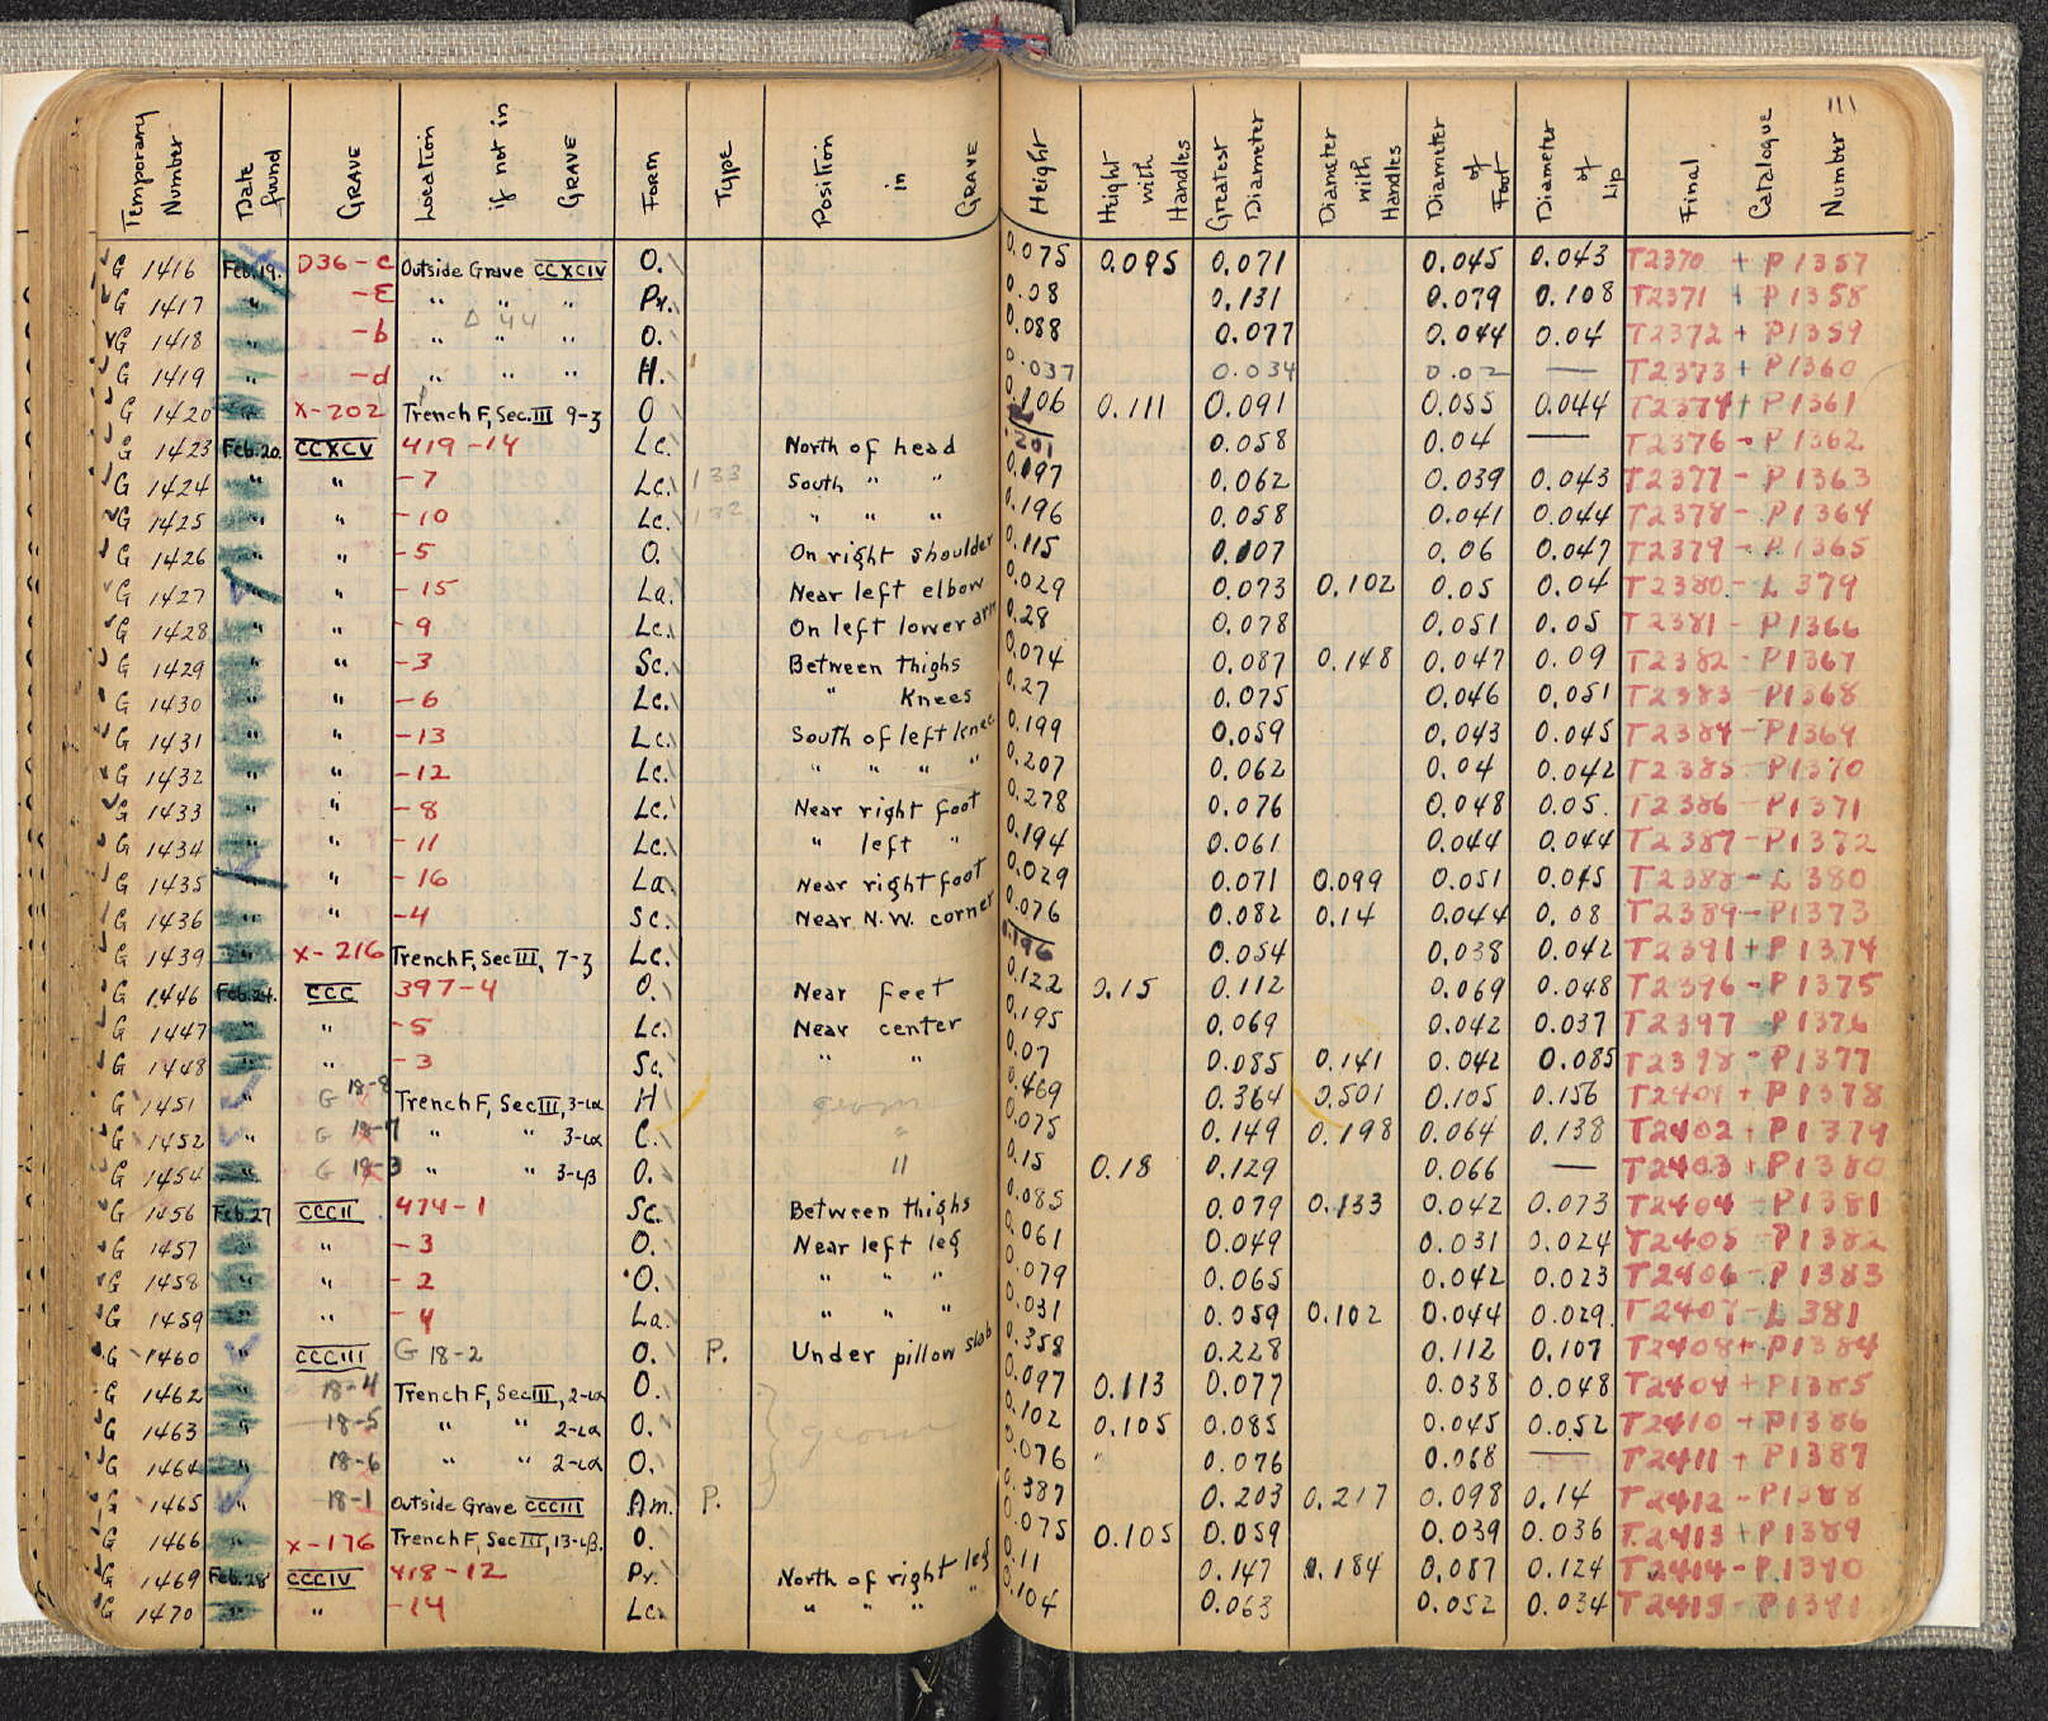 111
Temporary Number | Date found | GRAVE | Location if not in GRAVE | Form | TYPE | Position in GRAVE | Height | Height with Handles | Greatest Diameter | Diameter with Handles | Diameter of Foot | Diameter of Lip | Final Catalogue Number
G 1416 Feb. 19. D36-c Outside Grave CCXCIV O. 0.075 0.095 0.071 0.045 0.043 T2370 + P1357
G 1417 " -E " " " Pr. 0.08 0.131 0.079 0.108 T2371 + P1358
Δ 44
G 1418 " -b " " " O. 0.088 0.077 0.044 0.04 T2372 + P1359
G 1419 " -d " " " H. 0.037 0.034 0.02 — T2373 + P1360
G 1420 " X-202 Trench F, Sec. III 9-3 O 0.106 0.111 0.091 0.055 0.044 T2374 + P1361
G 1423 Feb. 20. CCXCV 419-14 Lc. North of head .201 0.058 0.04 — T2376 - P1362
G 1424 " " -7 Lc. 133 South " " 0.197 0.062 0.039 0.043 T2377 - P1363
G 1425 " " -10 Lc. 132 " " " 0.196 0.058 0.041 0.044 T2378 - P1364
G 1426 " " -5 O. On right shoulder 0.115 0.107 0.06 0.047 T2379 - P1365
G 1427 " " -15 La. Near left elbow 0.029 0.073 0.102 0.05 0.04 T2380 - L 379
G 1428 " " -9 Lc. On left lower arm 0.28 0.078 0.051 0.05 T2381 - P1366
G 1429 " " -3 Sc. Between thighs 0.074 0.087 0.148 0.047 0.09 T2382 - P1367
G 1430 " " -6 Lc. " Knees 0.27 0.075 0.046 0.051 T2383 - P1368
G 1431 " " -13 Lc. South of left knee 0.199 0.059 0.043 0.045 T2384 - P1369
G 1432 " " -12 Lc. " " " " 0.207 0.062 0.04 0.042 T2385 - P1370
G 1433 " " -8 Lc. Near right foot 0.278 0.076 0.048 0.05. T2386 - P1371
G 1434 " " -11 Lc. " left " 0.194 0.061 0.044 0.044 T2387 - P1372
G 1435 " -16 La Near right foot 0.029 0.071 0.099 0.051 0.045 T2388 - L 380
G 1436 " " -4 Sc. Near N.W. corner 0.076 0.082 0.14 0.044 0.08 T2389 - P1373
G 1439 " X-216 Trench F, Sec III, 7-3 Lc. 0.196 0.054 0.038 0.042 T2391 + P1374
G 1446 Feb. 24. CCC 397-4 O. Near feet 0.122 0.15 0.112 0.069 0.048 T2396 - P1375
G 1447 " " -5 Lc. Near center 0.195 0.069 0.042 0.037 T2397 - P1376
G 1448 " " -3 Sc. " " 0.07 0.085 0.141 0.042 0.085 T2398 - P1377
G 1451 " G 18-8 Trench F, Sec III, 3-ια H geom 0.469 0.364 0.501 0.105 0.156 T2401 + P1378
G 1452 " G 18-7 " " 3-ια C. " 0.075 0.149 0.198 0.064 0.138 T2402 + P1379
G 1454 " G 18-3 " " 3-ιβ O. " 0.15 0.18 0.129 0.066 — T2403 + P1380
G 1456 Feb. 27 CCCII 474-1 Sc. Between thighs 0.085 0.079 0.133 0.042 0.073 T2404 - P1381
G 1457 " " -3 O. Near left leg 0.061 0.049 0.031 0.024 T2405 - P1382
G 1458 " " -2 O. " " " 0.079 0.065 0.042 0.023 T2406 - P1383
G 1459 " " -4 La. " " " 0.031 0.059 0.102 0.044 0.029. T2407 - L 381
G 1460 " CCCIII G 18-2 O. P. Under pillow slab 0.358 0.228 0.112 0.107 T2408 + P1384
G 1462 " 18-4 Trench F, Sec III, 2-ια O. 0.097 0.113 0.077 0.038 0.048 T2409 + P1385
G 1463 " 18-5 " " 2-ια O. geom 0.102 0.105 0.085 0.045 0.052 T2410 + P1386
G 1464 " 18-6 " " 2-ια O. 0.076 " 0.076 0.068 — T2411 + P1387
G 1465 " 18-1 Outside Grave CCCIII Am. P. 0.387 0.203 0.217 0.098 0.14 T2412 - P1388
G 1466 " X-176 Trench F, Sec III, 13-ιβ. O. 0.075 0.105 0.059 0.039 0.036 T2413 + P1389
G 1469 Feb. 28 CCCIV 418-12 Pr. North of right leg 0.11 0.147 0.184 0.087 0.124 T2414 - P1390
G 1470 " " -14 Lc. " " " " 0.104 0.063 0.052 0.034 T2415 - P1391